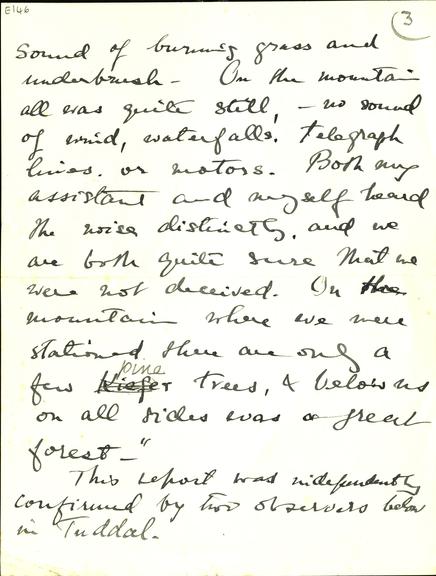 E146
3
sound of burning grass and
underbrush - On the mountain
all was quite still, - no sound
of wind, waterfalls, telegraph
lines, or motors. Both my
assistant and myself heard
the noise distinctly, and we
are both quite sure that we
were not deceived. On the
mountain where we were
stationed there are only a
pine
few Kiefer trees, & below us
on all sides was a great
forest -"
This report was independently
confirmed by two observers below
in Tuddal.